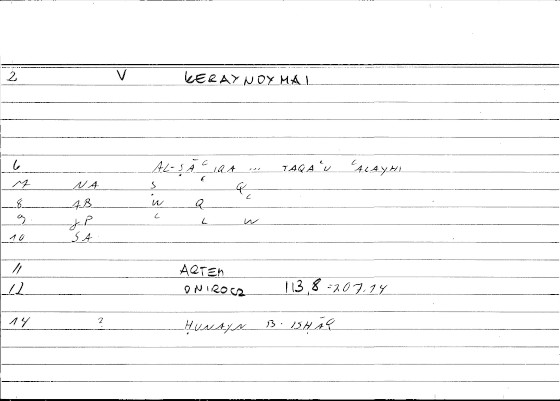 2 V KERAYNOYMAI
6 AL-ṢĀʿIQA ... TAQAʿU ʿALAYHI
M NA Ṣ ʿ Q
8 AB W Q ʿ
9 JP ʿ L W
10 SA
11 ARTEM
12 ONIROCR 113,8 = 207.14
14 ? ḤUNAYN B. ISḤĀQ